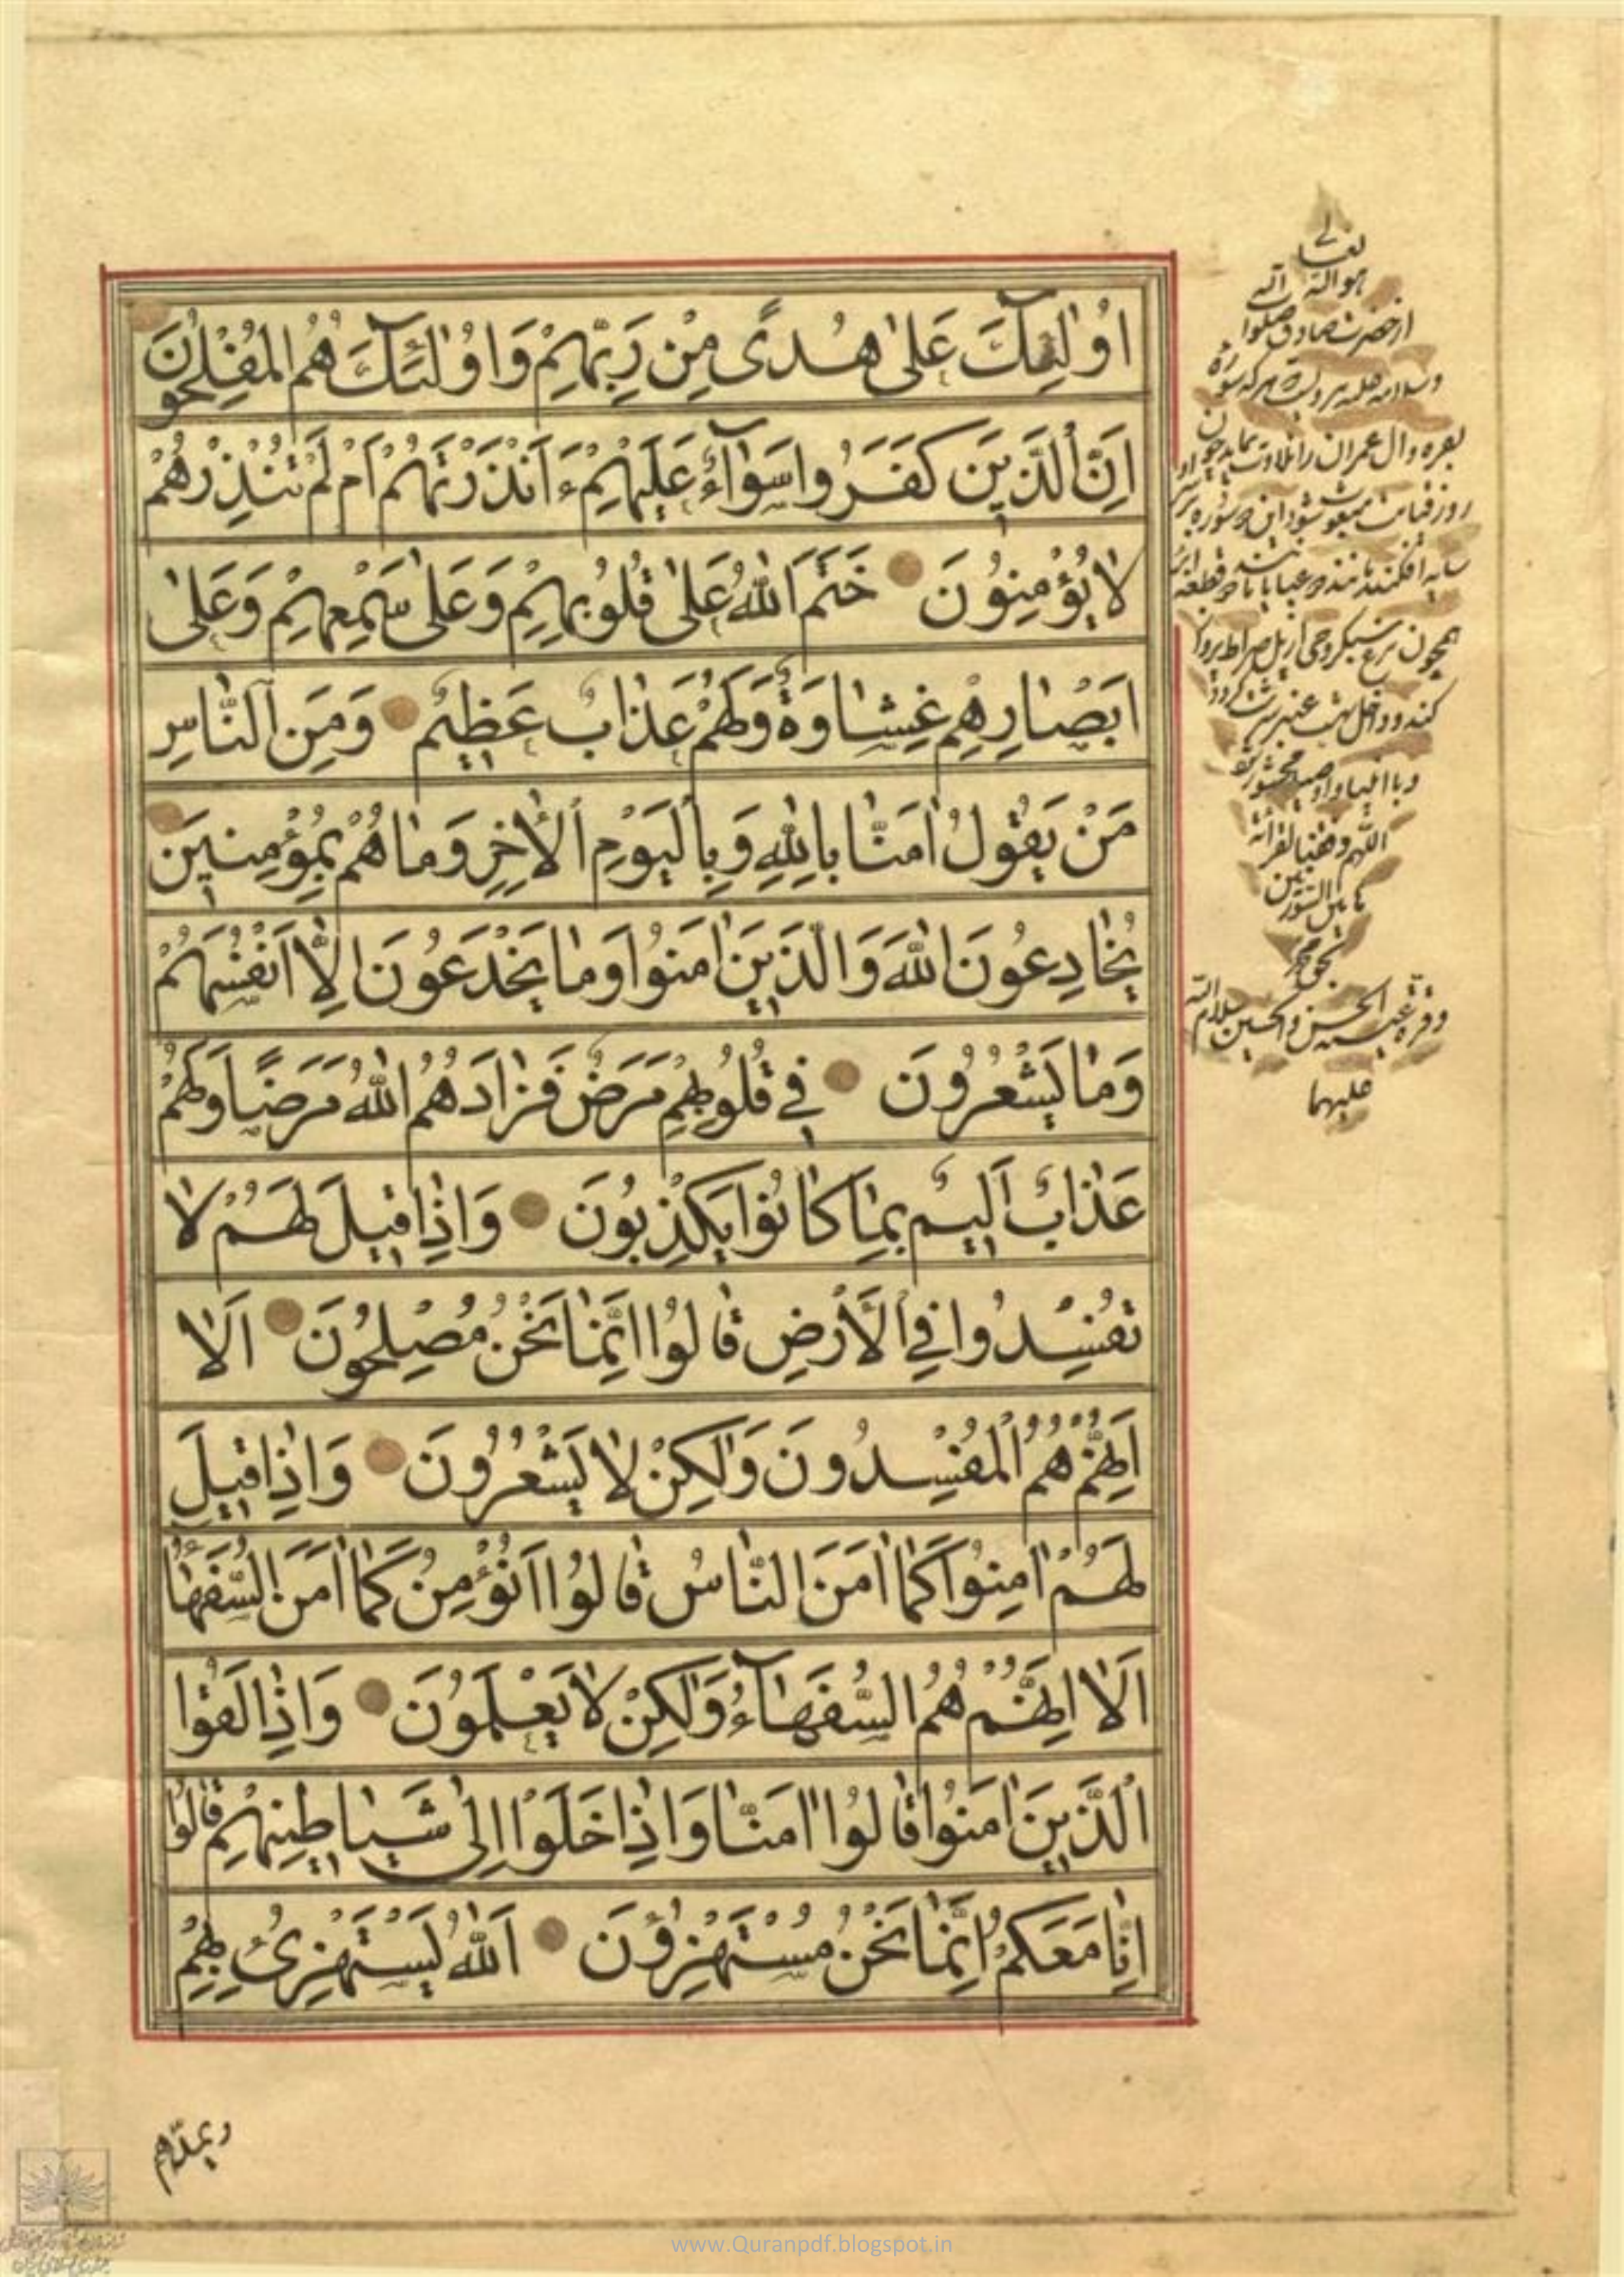 اُولٰئِكَ عَلىٰ هُدًى مِنْ رَبِّهِمْ وَاُولٰئِكَ هُمُ المُفْلِحُونَ
اِنَّ الَّذِينَ كَفَرُوا سَوَآءٌ عَلَيْهِمْ ءَاَنْذَرْتَهُمْ اَمْ لَمْ تُنْذِرْهُمْ
لا يُؤْمِنُونَ خَتَمَ اللهُ عَلىٰ قُلُوبِهِمْ وَعَلىٰ سَمْعِهِمْ وَعَلىٰ
اَبْصٰارِهِمْ غِشٰاوَةٌ وَلَهُمْ عَذٰابٌ عَظِيمٌ وَمِنَ النّٰاسِ
مَنْ يَقُولُ اٰمَنّٰا بِاللهِ وَبِالْيَوْمِ الْاٰخِرِ وَمٰا هُمْ بِمُؤْمِنِينَ
يُخٰادِعُونَ اللهَ وَالَّذِينَ اٰمَنُوا وَمٰا يَخْدَعُونَ اِلّٰا اَنْفُسَهُمْ
وَمٰا يَشْعُرُونَ فِي قُلُوبِهِمْ مَرَضٌ فَزٰادَهُمُ اللهُ مَرَضًا وَلَهُمْ
عَذٰابٌ اَلِيمٌ بِمٰا كٰانُوا يَكْذِبُونَ وَاِذٰا قِيلَ لَهُمْ لٰا
تُفْسِدُوا فِي الْاَرْضِ قٰالُوا اِنَّمٰا نَحْنُ مُصْلِحُونَ اَلٰا
اِنَّهُمْ هُمُ الْمُفْسِدُونَ وَلٰكِنْ لٰا يَشْعُرُونَ وَاِذٰا قِيلَ
لَهُمْ اٰمِنُوا كَمٰا اٰمَنَ النّٰاسُ قٰالُوا اَنُؤْمِنُ كَمٰا اٰمَنَ السُّفَهٰاءُ
اَلٰا اِنَّهُمْ هُمُ السُّفَهٰآءُ وَلٰكِنْ لٰا يَعْلَمُونَ وَاِذٰا لَقُوا
الَّذِينَ اٰمَنُوا قٰالُوا اٰمَنّٰا وَاِذٰا خَلَوْا اِلىٰ شَيٰاطِينِهِمْ قٰالُوا
اِنّٰا مَعَكُمْ اِنَّمٰا نَحْنُ مُسْتَهْزِؤُنَ اَللهُ يَسْتَهْزِئُ بِهِمْ
ويمدهم
هو الله
تعالى
از حضرت صادق صلوات الله
وسلامه عليه مرويست هر كه سوره
بقره وال عمران را تلاوت نمايد چون
روز قيامت مبعوث شود اين دو سوره بر سر او
سايه افكنند مانند دو قطعه ابر
همچون مرغ سبكروحى از پل صراط پرواز
كند و داخل بهشت عنبر سرشت گردد
وبا انبيا و اوصيا محشور
اللهم وفقنا لقرائة
هاتين السورتين
بحق محمد
وقرة عينيه الحسن والحسين سلام الله
عليهما
www.Quranpdf.blogspot.in